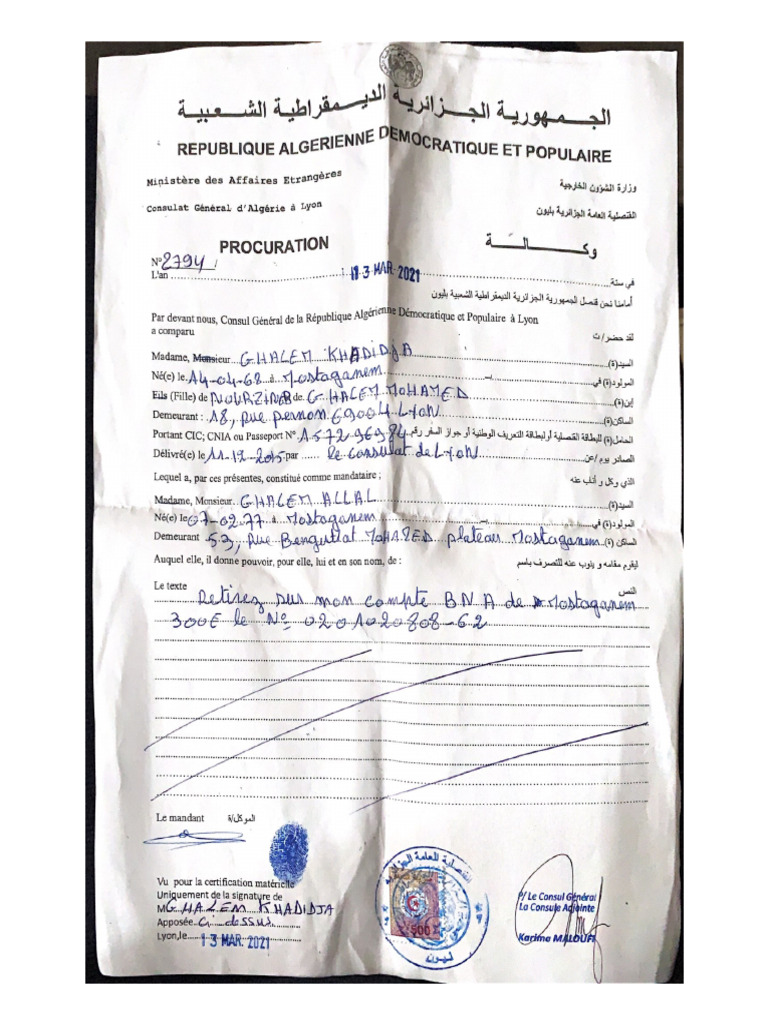 الجمهورية الجزائرية الديمقراطية الشعبية
REPUBLIQUE ALGERIENNE DEMOCRATIQUE ET POPULAIRE
Ministère des Affaires Etrangères وزارة الشؤون الخارجية
Consulat Général d'Algérie à Lyon القنصلية العامة الجزائرية بليون
PROCURATION وكالة
N° 2794
L'an 13 MAR. 2021 في سنة
أمامنا نحن قنصل الجمهورية الجزائرية الديمقراطية الشعبية بليون
Par devant nous, Consul Général de la République Algérienne Démocratique et Populaire à Lyon
a comparu لقد حضر/ت
Madame, Monsieur GHALEM KHADIDJA السيد(ة)
Né(e) le 14-04-68 à Mostaganem المولود(ة) في
Fils (Fille) de NOURZINEB de GHALEM MOHAMED إبن(ة)
Demeurant : 18, rue pernon 69004 Lyon الساكن(ة)
Portant CIC; CNIA ou Passeport N° 157296984 الحامل(ة) للبطاقة القنصلية أو لبطاقة التعريف الوطنية أو جواز السفر رقم
Délivré(e) le 11-12-2015 par le consulat de Lyon الصادر يوم /عن
Lequel a, par ces présentes, constitué comme mandataire ; الذي وكل و أناب عنه
Madame, Monsieur GHALEM ALLAL السيد(ة)
Né(e) 07-02-77 à Mostaganem المولود(ة) في
Demeurant 53, Rue Benguettat MOHAMED plateau Mostaganem الساكن (ة)
Auquel elle, il donne pouvoir, pour elle, lui et en son nom, de : ليقوم مقامه و ينوب عنه للتصرف باسم
Le texte النص
Retirez sur mon compte BNA de Mostaganem
300E le N° 0201020808-62
Le mandant الموكل/ة
Vu pour la certification matérielle
Uniquement de la signature de
M GHALEM KHADIDJA
Apposée ci dessus
Lyon,le 13 MAR. 2021
القنصلية العامة الجزائرية
500
ليون
P/ Le Consul Général
La Consule Adjointe
Karima MALOUFI